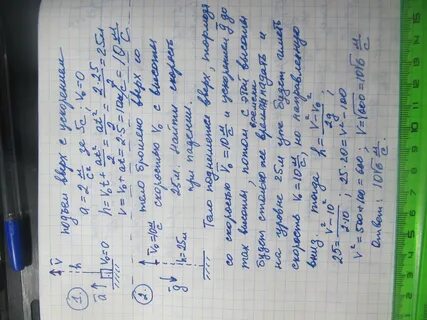 1.
подъём вверх с ускорением
a = 2 м/с² за 5с, v₀=0
h = v₀t + at²/2 = at²/2 = 2·25/2 = 25м
v = v₀ + at = 2·5 = 10 м/с
↑ v̄
ā ↑
v₀=0
2.
тело брошено вверх со
скоростью v₀ с высоты
25м. Найти скорость
при падении.
v̄₀=10м/с
h=25м
ḡ ↓
Тело поднимается вверх, тормозя
со скоростью v₀ = 10 м/с и ускорением g до
высоты, потом с этой высоты
будет столько же времени падать и
на уровне 25м уже будет иметь
скорость v₀=10 м/с, но направленную
вниз, тогда h = v²-v₀²/2g;
25 = v²-10²/2·10; 25·20 = v²-100
v² = 500+100 = 600; v = √600 = 10√6 м/с
Ответ: 10√6 м/с